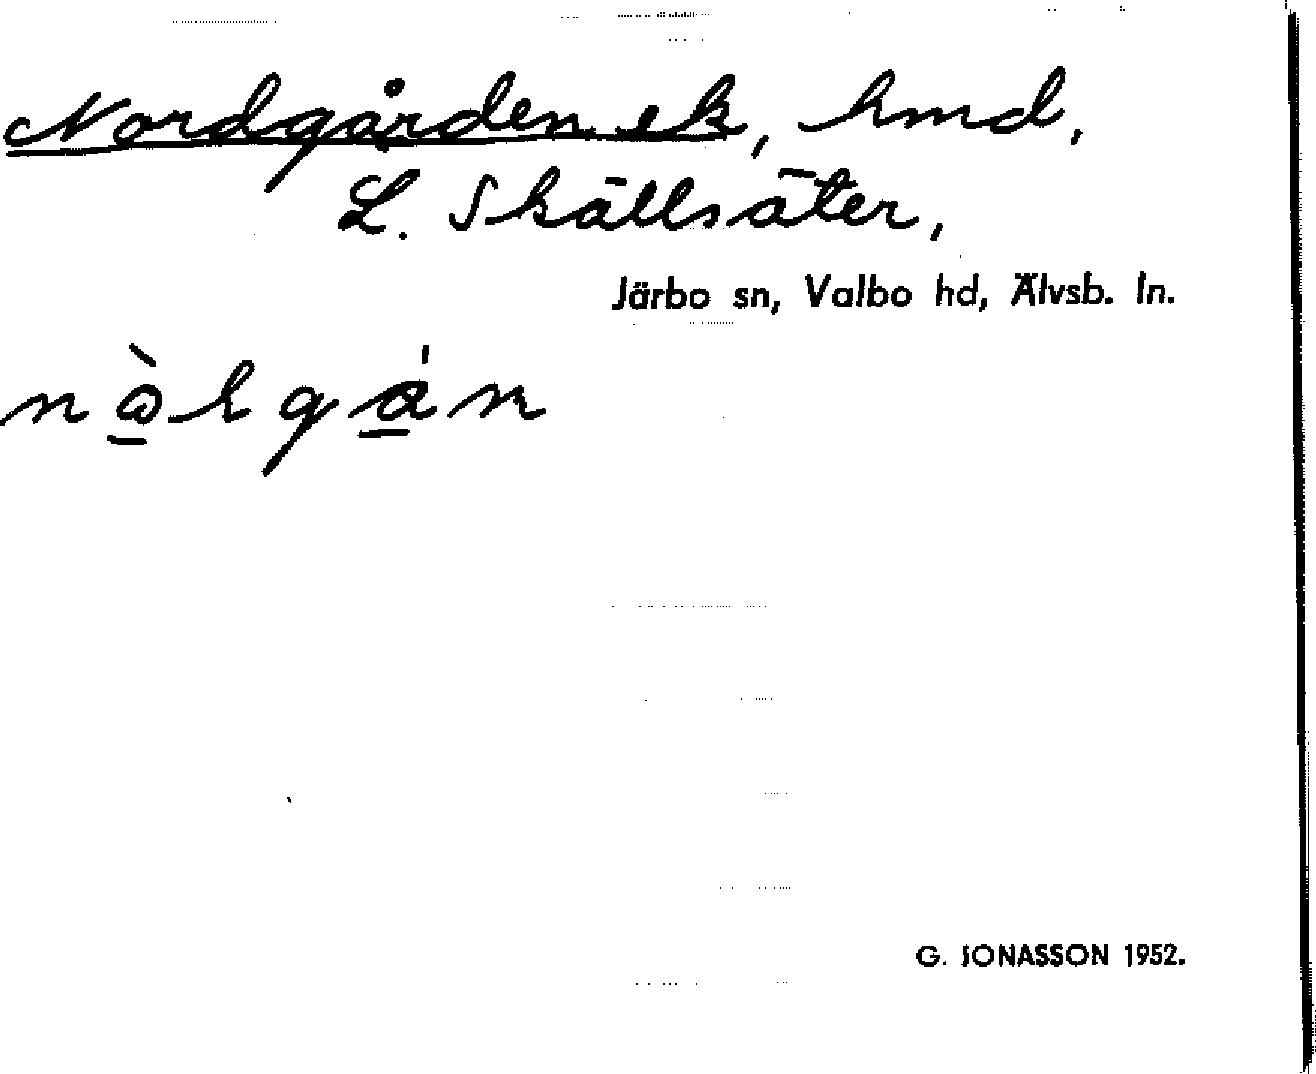 Nordgården ek, hmd,
L. Skällsäter,
Järbo sn, Valbo hd, Älvsb. ln.
G. JONASSON 1952.